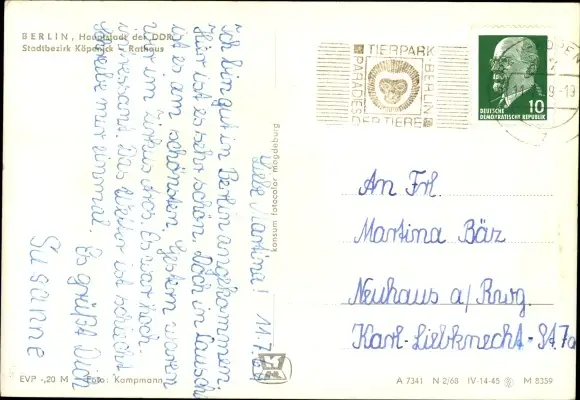 BERLIN, Hauptstadt der DDR
Stadtbezirk Köpenick - Rathaus
Liebe Martina! 11.7.69
Ich bin gut in Berlin angekommen.
Hier ist es sehr schön. Doch in Lauscha
ist es am schönsten. Gestern waren
wir im Zirkus Aros. Es war hoch-
interessant. Das Wetter ist schlecht.
Schreibe mir einmal.
Es grüßt Dich
Susanne
konsum fotocolor magdeburg
TIERPARK BERLIN
PARADIES DER TIERE
DEUTSCHE
DEMOKRATISCHE REPUBLIK
10
An Frl.
Martina Bärz
Neuhaus a/Rwg.
Karl-Liebknecht-St. 7a
EVP -,20 M Foto: Kampmann
A 7341 N 2/68 IV-14-45 M 8359